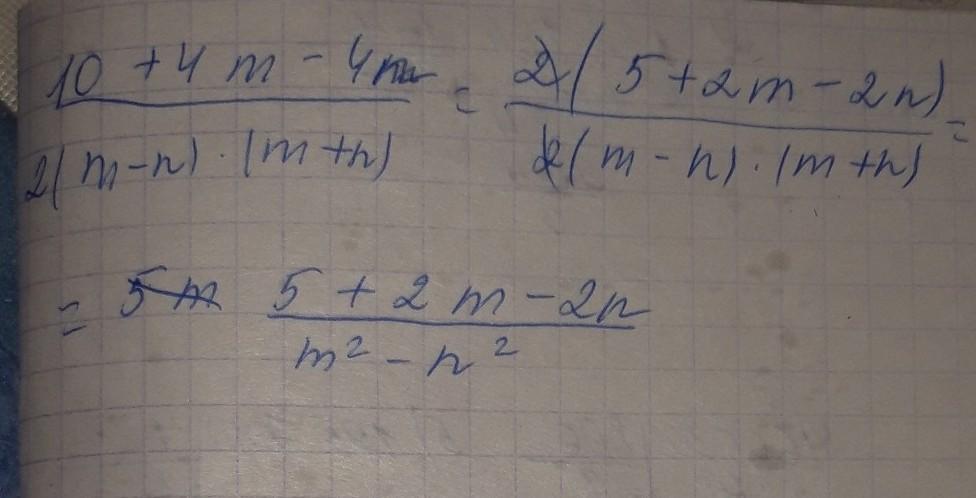 10 + 4m - 4n / 2(m-n) · (m+n) = 2(5+2m-2n) / 2(m-n) · (m+n) =
= 5m 5 + 2m - 2n / m² - n²